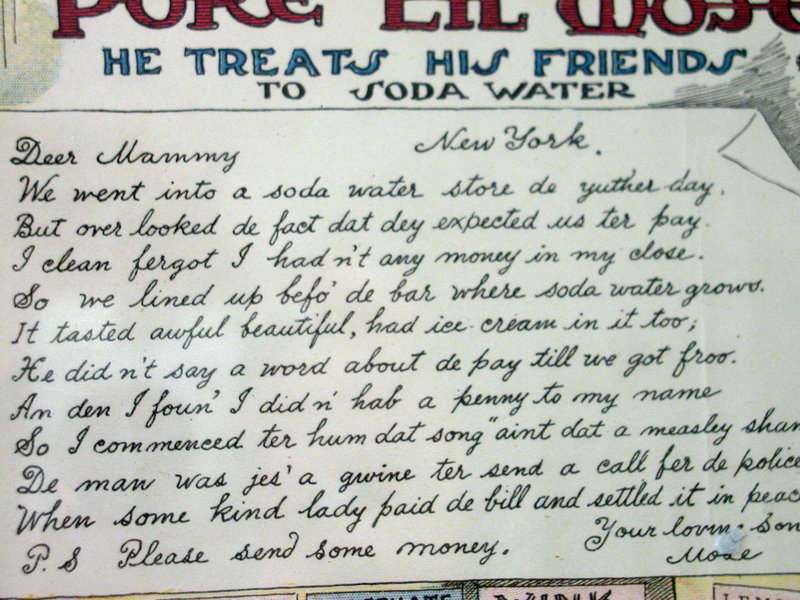 PORE LIL MOSE
HE TREATS HIS FRIENDS
TO SODA WATER
Deer Mammy New York.
We went into a soda water store de yuther day.
But over looked de fact dat dey expected us ter pay.
I clean fergot I had n't any money in my close.
So we lined up befo' de bar where soda water grows.
It tasted awful beautiful, had ice cream in it too;
He did n't say a word about de pay till we got froo.
An den I foun' I did n' hab a penny to my name
So I commenced ter hum dat song "aint dat a measley sham
De man was jes' a gwine ter send a call fer de police
When some kind lady paid de bill and settled it in peac
Your lovin' son
P.S Please send some money. Mose